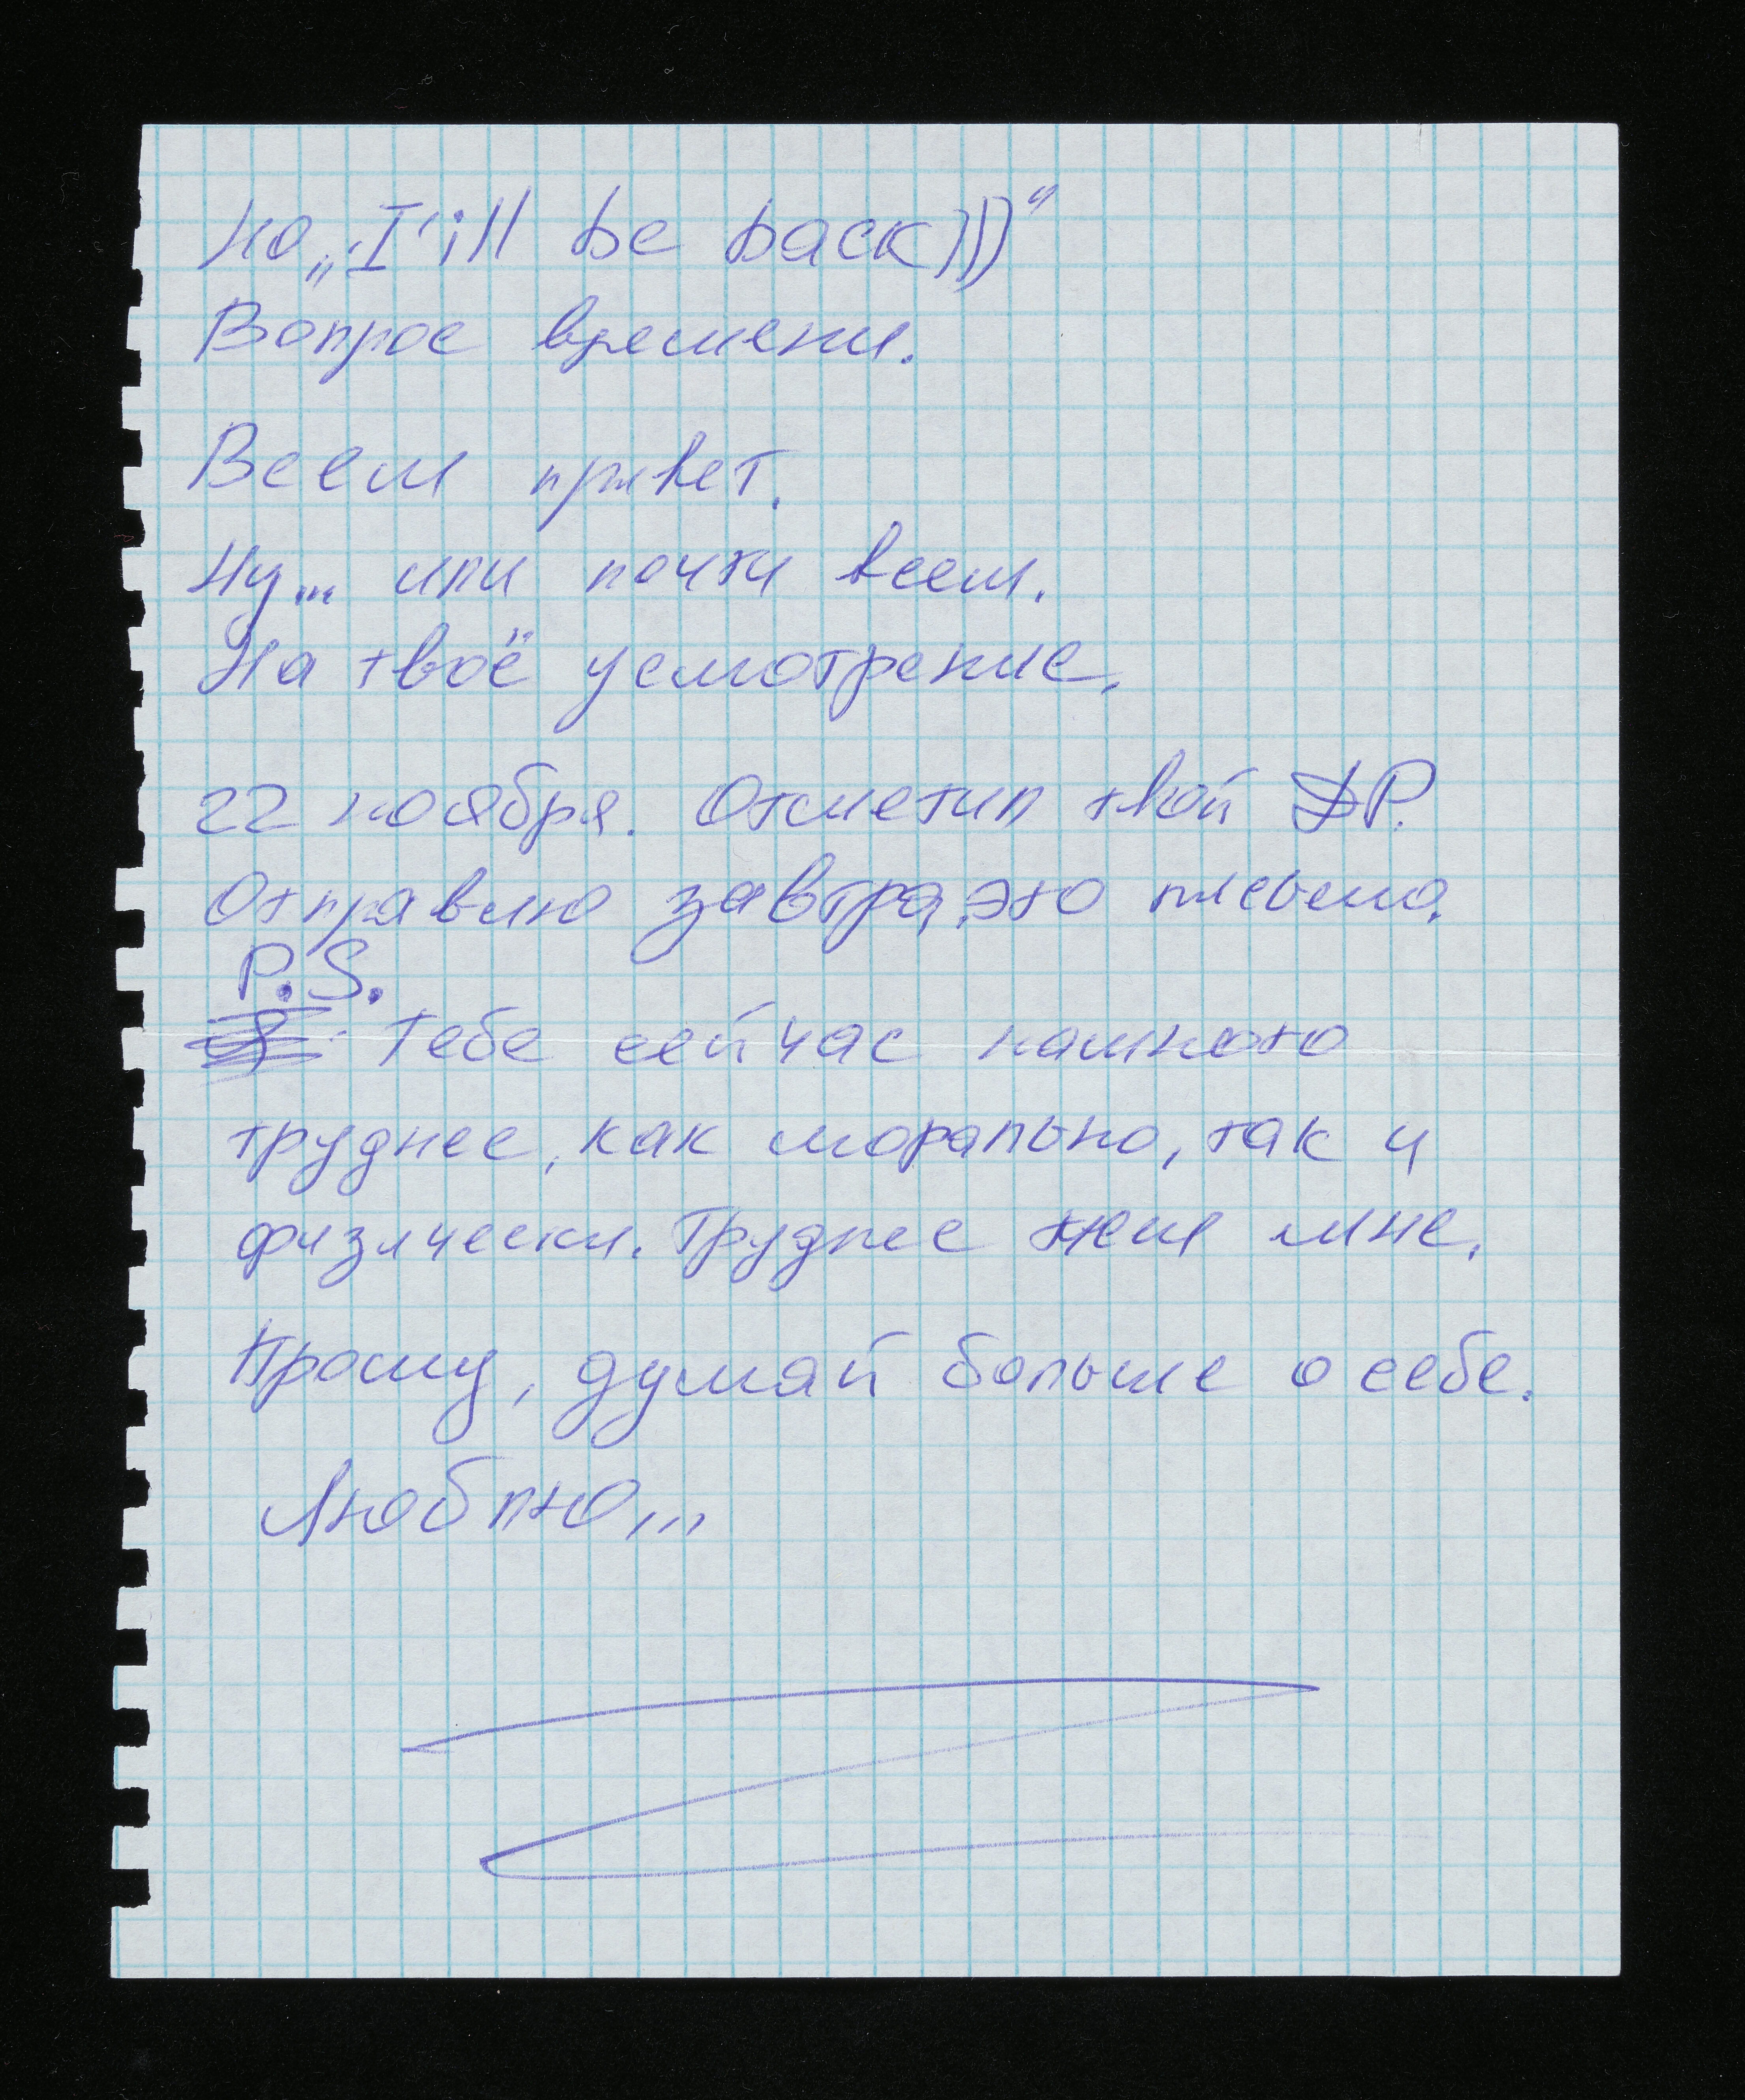 Но „I'ill be back)))“
Вопрос времени.
Всем привет.
Ну... или почти всем.
На твоё усмотрение.
22 ноября. Отметил твой ДР.
Отправлю завтра это письмо.
P.S.
Тебе сейчас намного
труднее, как морально, так и
физически. Труднее чем мне.
Прошу, думай больше о себе.
Люблю...